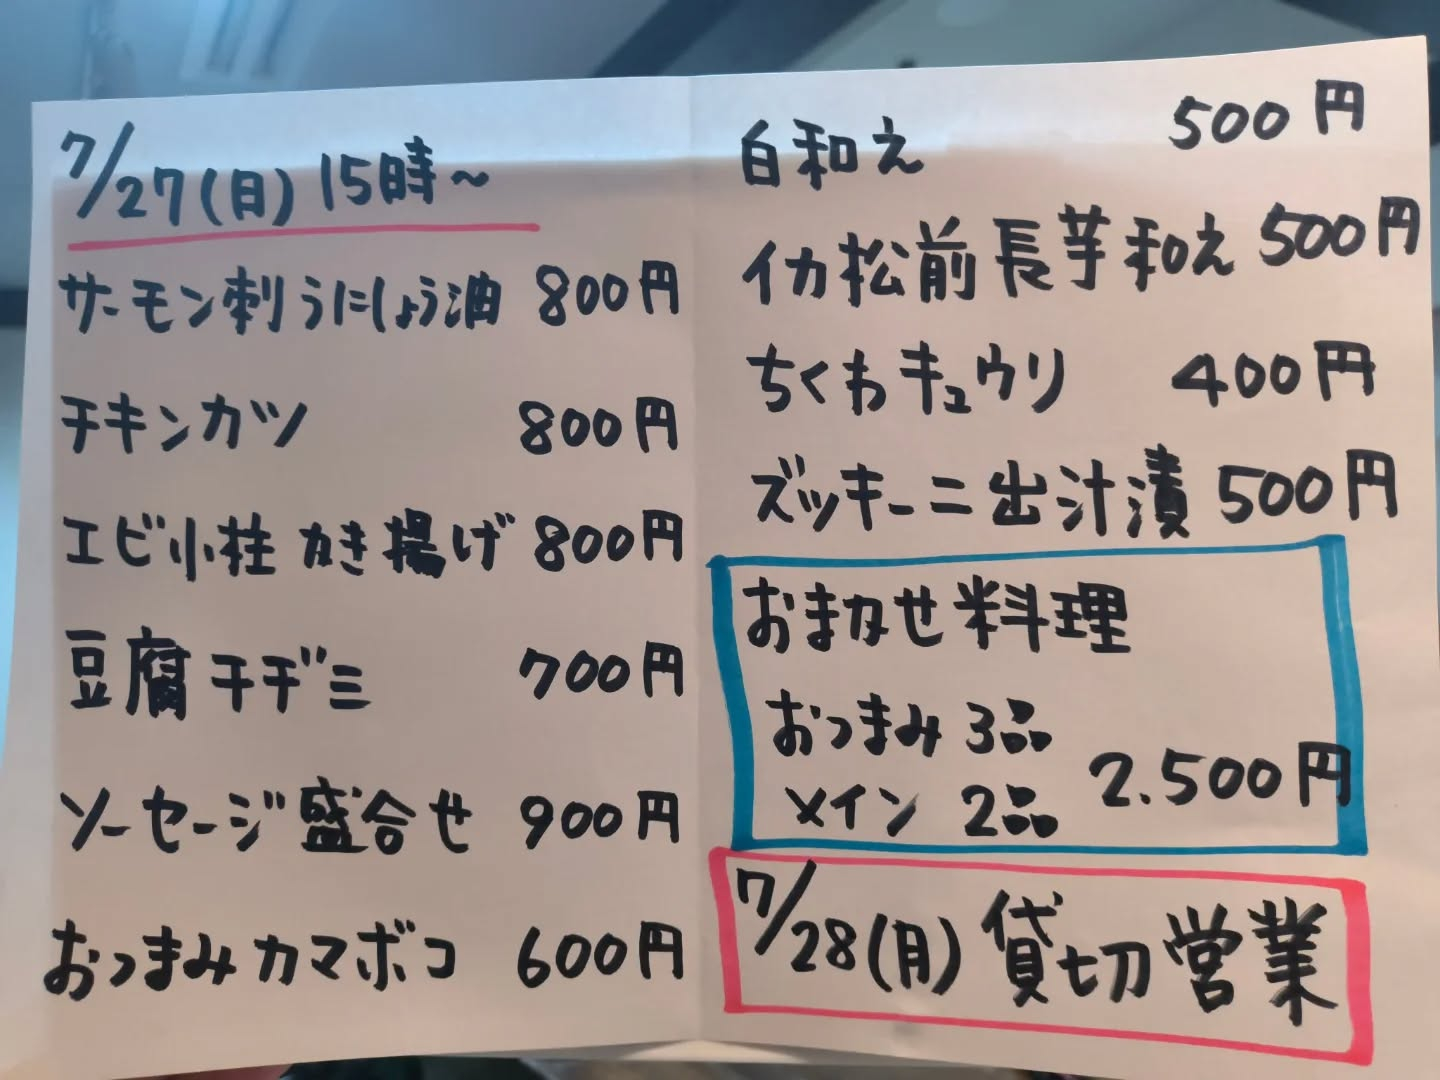 7/27(日)15時～
サーモン刺うにしょう油 800円
チキンカツ 800円
エビ小柱かき揚げ 800円
豆腐チヂミ 700円
ソーセージ盛合せ 900円
おつまみカマボコ 600円
白和え 500円
イカ松前長芋和え 500円
ちくわキュウリ 400円
ズッキーニ出汁漬 500円
おまかせ料理
おつまみ 3品
メイン 2品 2.500円
7/28(月)貸切営業